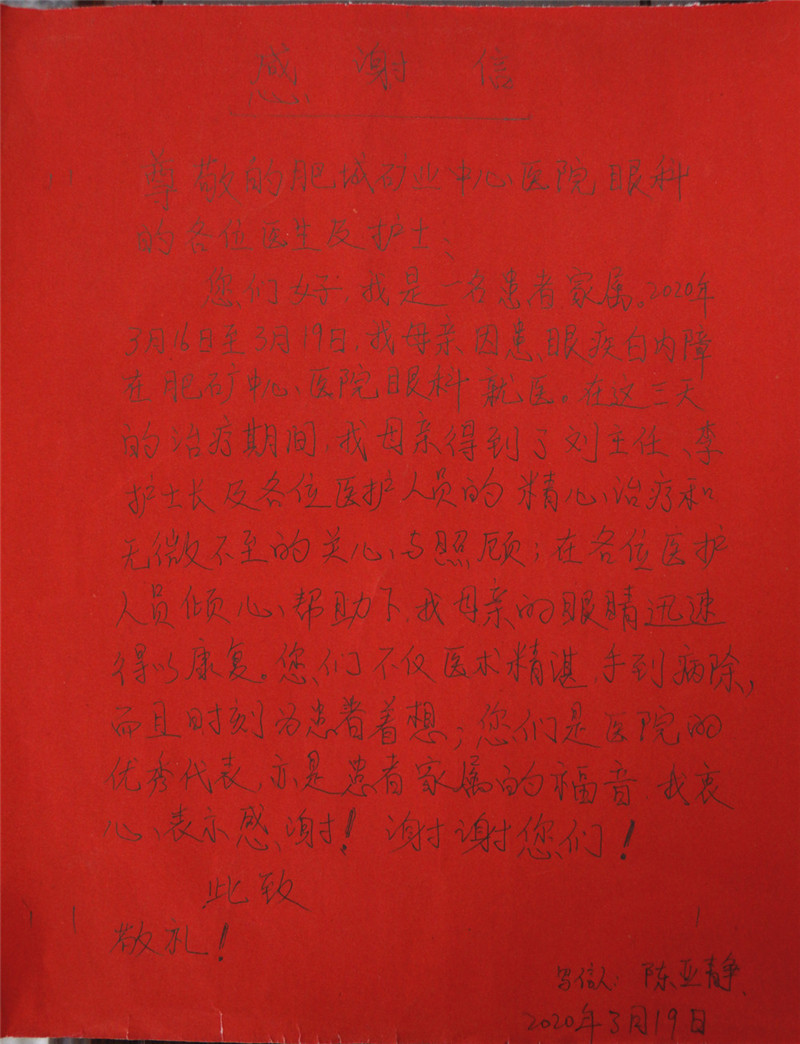 感谢信
尊敬的肥城矿业中心医院眼科
的各位医生及护士：
您们好，我是一名患者家属。2020年
3月16日至3月19日，我母亲因患眼疾白内障
在肥矿中心医院眼科就医。在这三天
的治疗期间，我母亲得到了刘主任、李
护士长及各位医护人员的精心治疗和
无微不至的关心与照顾；在各位医护
人员倾心帮助下，我母亲的眼睛迅速
得以康复。您们不仅医术精湛，手到病除，
而且时刻为患者着想；您们是医院的
优秀代表，亦是患者家属的福音，我衷
心表示感谢！谢谢您们！
此致
敬礼！
写信人：陈亚静
2020年3月19日